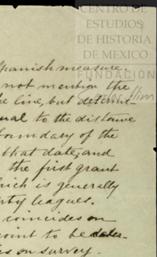 CENTRO DE
ESTUDIOS
DE HISTORIA
DE MEXICO
FUNDACIÓN
Spanish measure.
not mention the
line, but determ
ual to the distance
boundary of the
that date, and
the first grant
which is generally
ty leagues.
coincides on
oint to be deter-
on survey.